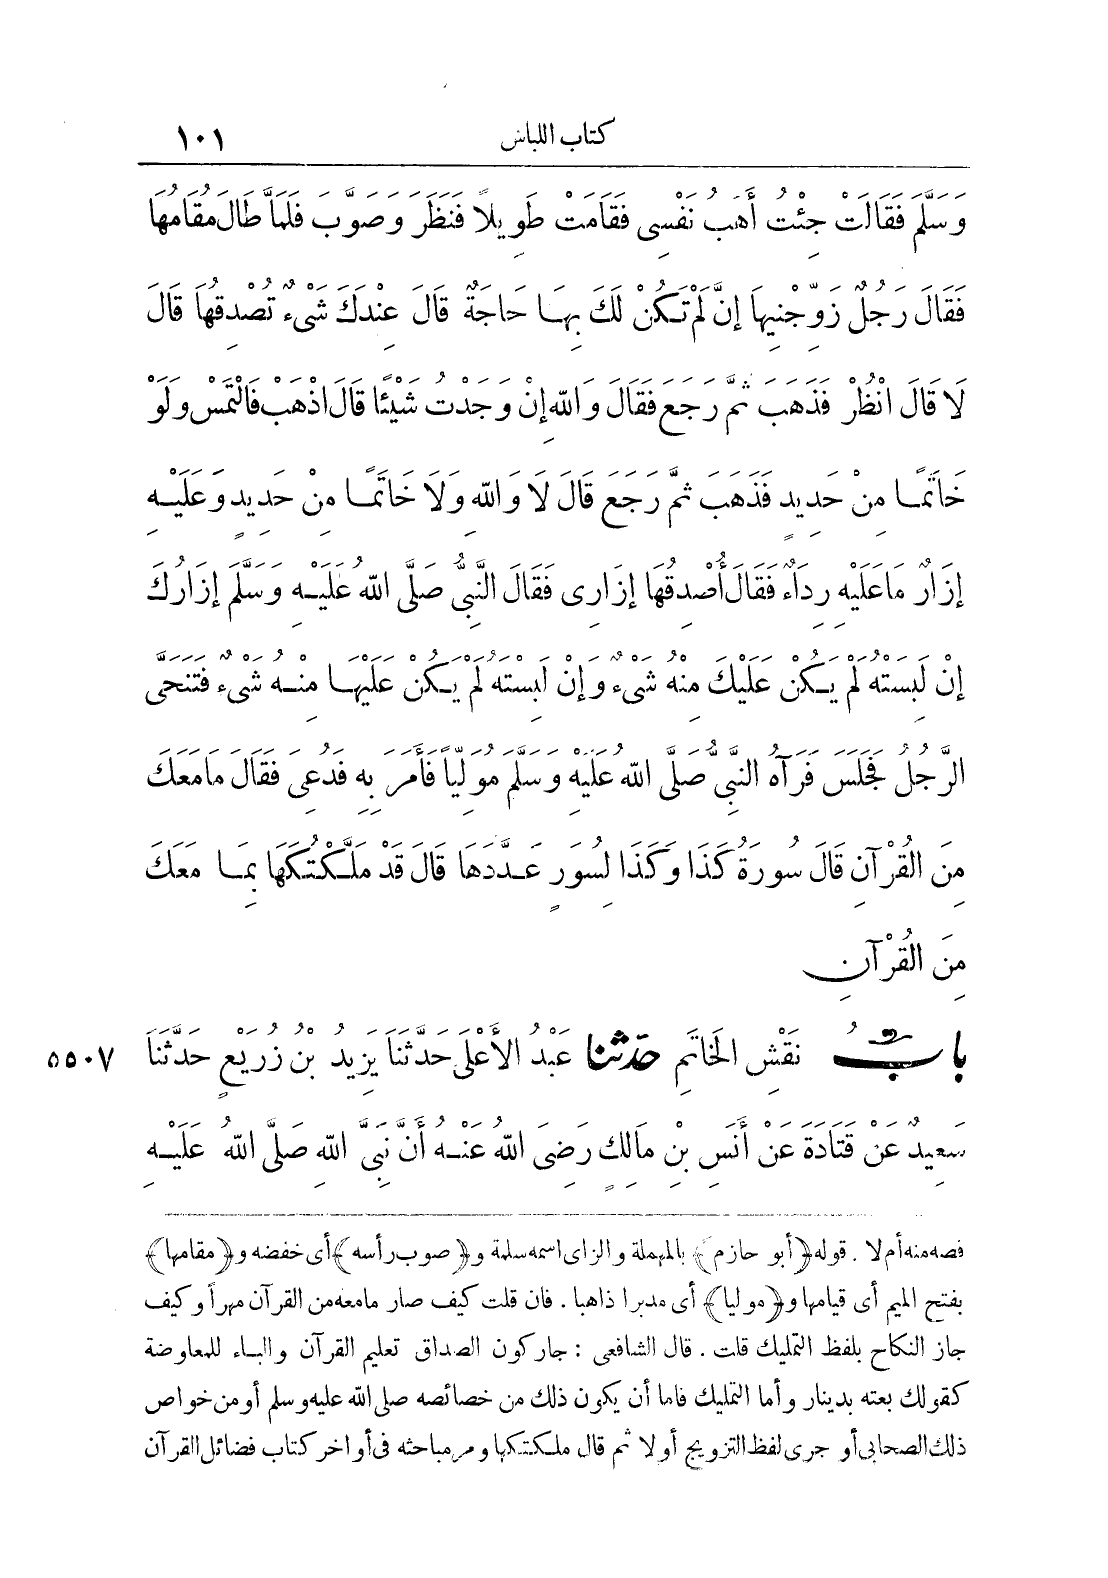 كتاب اللباس ١٠١
وَسَلَّمَ فَقَالَتْ جِئْتُ أَهَبُ نَفْسِى فَقَامَتْ طَوِيلًا فَنَظَرَ وَصَوَّبَ فَلَمَّا طَالَ مُقَامُهَا
فَقَالَ رَجُلٌ زَوِّجْنِيهَا إِنْ لَمْ تَكُنْ لَكَ بِهَا حَاجَةٌ قَالَ عِنْدَكَ شَىْءٌ تُصْدِقُهَا قَالَ
لَا قَالَ انْظُرْ فَذَهَبَ ثُمَّ رَجَعَ فَقَالَ وَاللهِ إِنْ وَجَدْتُ شَيْئًا قَالَ اذْهَبْ فَالْتَمِسْ وَلَوْ
خَاتَمًا مِنْ حَدِيدٍ فَذَهَبَ ثُمَّ رَجَعَ قَالَ لَا وَاللهِ وَلَا خَاتَمًا مِنْ حَدِيدٍ وَعَلَيْهِ
إِزَارٌ مَا عَلَيْهِ رِدَاءٌ فَقَالَ أُصْدِقُهَا إِزَارِى فَقَالَ النَّبِىُّ صَلَّى اللهُ عَلَيْهِ وَسَلَّمَ إِزَارُكَ
إِنْ لَبِسَتْهُ لَمْ يَكُنْ عَلَيْكَ مِنْهُ شَىْءٌ وَإِنْ لَبِسْتَهُ لَمْ يَكُنْ عَلَيْهَا مِنْهُ شَىْءٌ فَتَنَحَّى
الرَّجُلُ فَجَلَسَ فَرَآهُ النَّبِىُّ صَلَّى اللهُ عَلَيْهِ وَسَلَّمَ مُوَلِّيًا فَأَمَرَ بِهِ فَدُعِىَ فَقَالَ مَا مَعَكَ
مِنَ الْقُرْآنِ قَالَ سُورَةُ كَذَا وَكَذَا لِسُوَرٍ عَدَّدَهَا قَالَ قَدْ مَلَّكْتُكَهَا بِمَا مَعَكَ
مِنَ الْقُرْآنِ
بَابُ نَقْشِ الْخَاتَمِ حَدَّثَنَا عَبْدُ الْأَعْلَى حَدَّثَنَا يَزِيدُ بْنُ زُرَيْعٍ حَدَّثَنَا ٥٥٠٧
سَعِيدٌ عَنْ قَتَادَةَ عَنْ أَنَسِ بْنِ مَالِكٍ رَضِىَ اللهُ عَنْهُ أَنَّ نَبِىَّ اللهِ صَلَّى اللهُ عَلَيْهِ
فصه منه أم لا . قوله ﴿أبو حازم﴾ بالمهملة والزاى اسمه سلمة و﴿صوب رأسه﴾ أى خفضه و﴿مقامها﴾
بفتح الميم أى قيامها و﴿موليا﴾ أى مدبرا ذاهبا . فان قلت كيف صار مامعه من القرآن مهراً وكيف
جاز النكاح بلفظ التمليك قلت . قال الشافعى : جاز كون الصداق تعليم القرآن والباء للمعاوضة
كقولك بعته بدينار وأما التمليك فاما أن يكون ذلك من خصائصه صلى الله عليه وسلم أو من خواص
ذلك الصحابى أو جرى لفظ التزويج أولا ثم قال ملكتكها ومر مباحثه فى أواخر كتاب فضائل القرآن